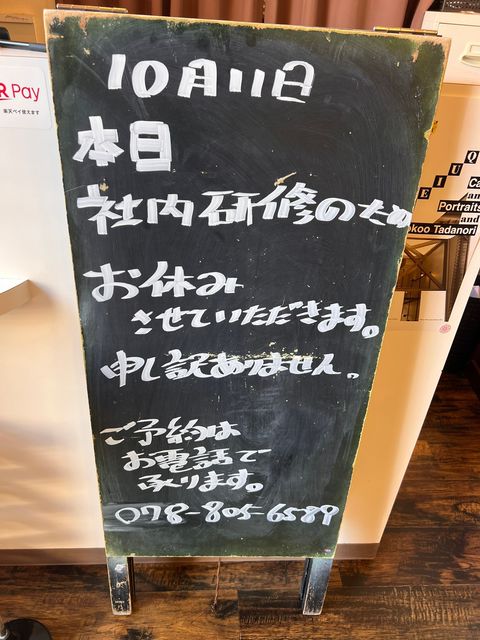 10月11日
本日
社内研修のため
お休み
させていただきます。
申し訳ありません。
ご予約は
お電話で
承ります。
078-805-6589
R Pay
楽天ペイ使えます
E I U Q
Ca
and
Portraits
and
okoo Tadanori